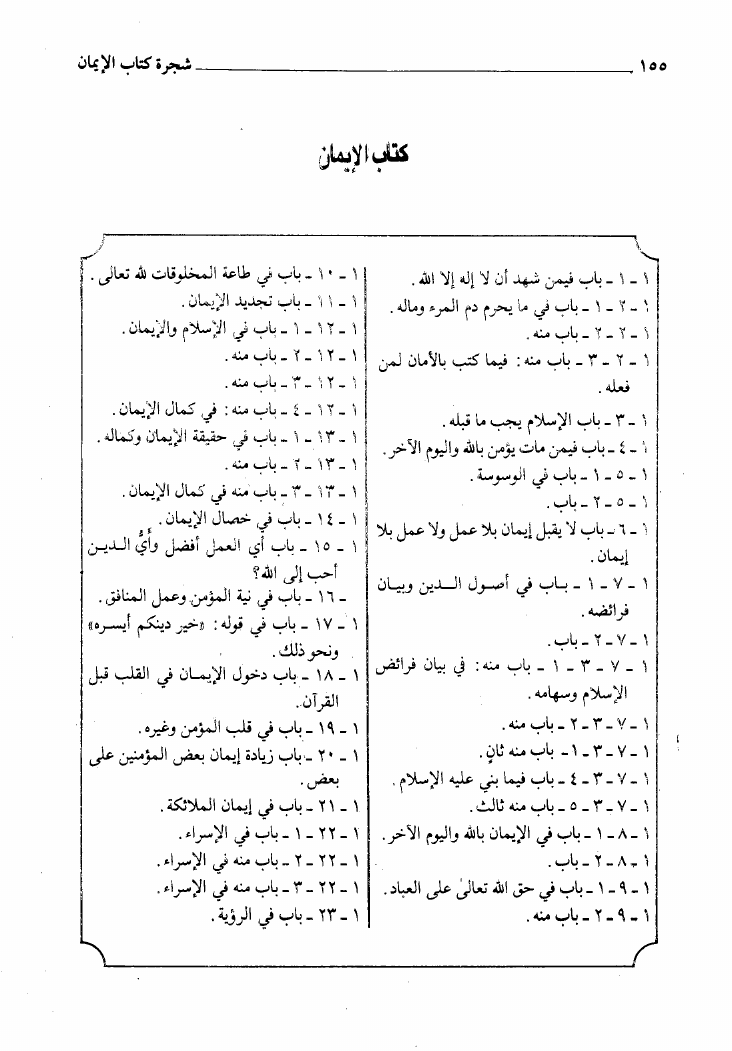 ١٥٥ شجرة كتاب الإيمان
كتاب الإيمان
١ - ١ - باب فيمن شهد أن لا إله إلا الله .
١ - ٢ - ١ - باب في ما يحرم دم المرء وماله .
١ - ٢ - ٢ - باب منه .
١ - ٢ - ٣ - باب منه : فيما كتب بالأمان لمن
فعله .
١ - ٣ - باب الإسلام يجب ما قبله .
١ - ٤ - باب فيمن مات يؤمن بالله واليوم الآخر .
١ - ٥ - ١ - باب في الوسوسة .
١ - ٥ - ٢ - باب .
١ - ٦ - باب لا يقبل إيمان بلا عمل ولا عمل بلا
إيمان .
١ - ٧ - ١ - باب في أصول الدين وبيان
فرائضه .
١ - ٧ - ٢ - باب .
١ - ٧ - ٣ - ١ - باب منه : في بيان فرائض
الإسلام وسهامه .
١ - ٧ - ٣ - ٢ - باب منه .
١ - ٧ - ٣ - ١- باب منه ثانٍ .
١ - ٧ - ٣ - ٤ - باب فيما بني عليه الإسلام .
١ - ٧ - ٣ - ٥ - باب منه ثالث .
١ - ٨ - ١ - باب في الإيمان بالله واليوم الآخر .
١ - ٨ - ٢ - باب .
١ - ٩ - ١ - باب في حق الله تعالى على العباد .
١ - ٩ - ٢ - باب منه .
١ - ١٠ - باب في طاعة المخلوقات لله تعالى .
١ - ١١ - باب تجديد الإيمان .
١ - ١٢ - ١ - باب في الإسلام والإيمان .
١ - ١٢ - ٢ - باب منه .
١ - ١٢ - ٣ - باب منه .
١ - ١٢ - ٤ - باب منه : في كمال الإيمان .
١ - ١٣ - ١ - باب في حقيقة الإيمان وكماله .
١ - ١٣ - ٢ - باب منه .
١ - ١٣ - ٣ - باب منه في كمال الإيمان .
١ - ١٤ - باب في خصال الإيمان .
١ - ١٥ - باب أي العمل أفضل وأيُّ الدين
أحب إلى الله؟
- ١٦ - باب في نية المؤمن وعمل المنافق .
١ - ١٧ - باب في قوله : «خير دينكم أيسره»
ونحو ذلك .
١ - ١٨ - باب دخول الإيمان في القلب قبل
القرآن .
١ - ١٩ - باب في قلب المؤمن وغيره .
١ - ٢٠ - باب زيادة إيمان بعض المؤمنين على
بعض .
١ - ٢١ - باب في إيمان الملائكة .
١ - ٢٢ - ١ - باب في الإسراء .
١ - ٢٢ - ٢ - باب منه في الإسراء .
١ - ٢٢ - ٣ - باب منه في الإسراء .
١ - ٢٣ - باب في الرؤية .